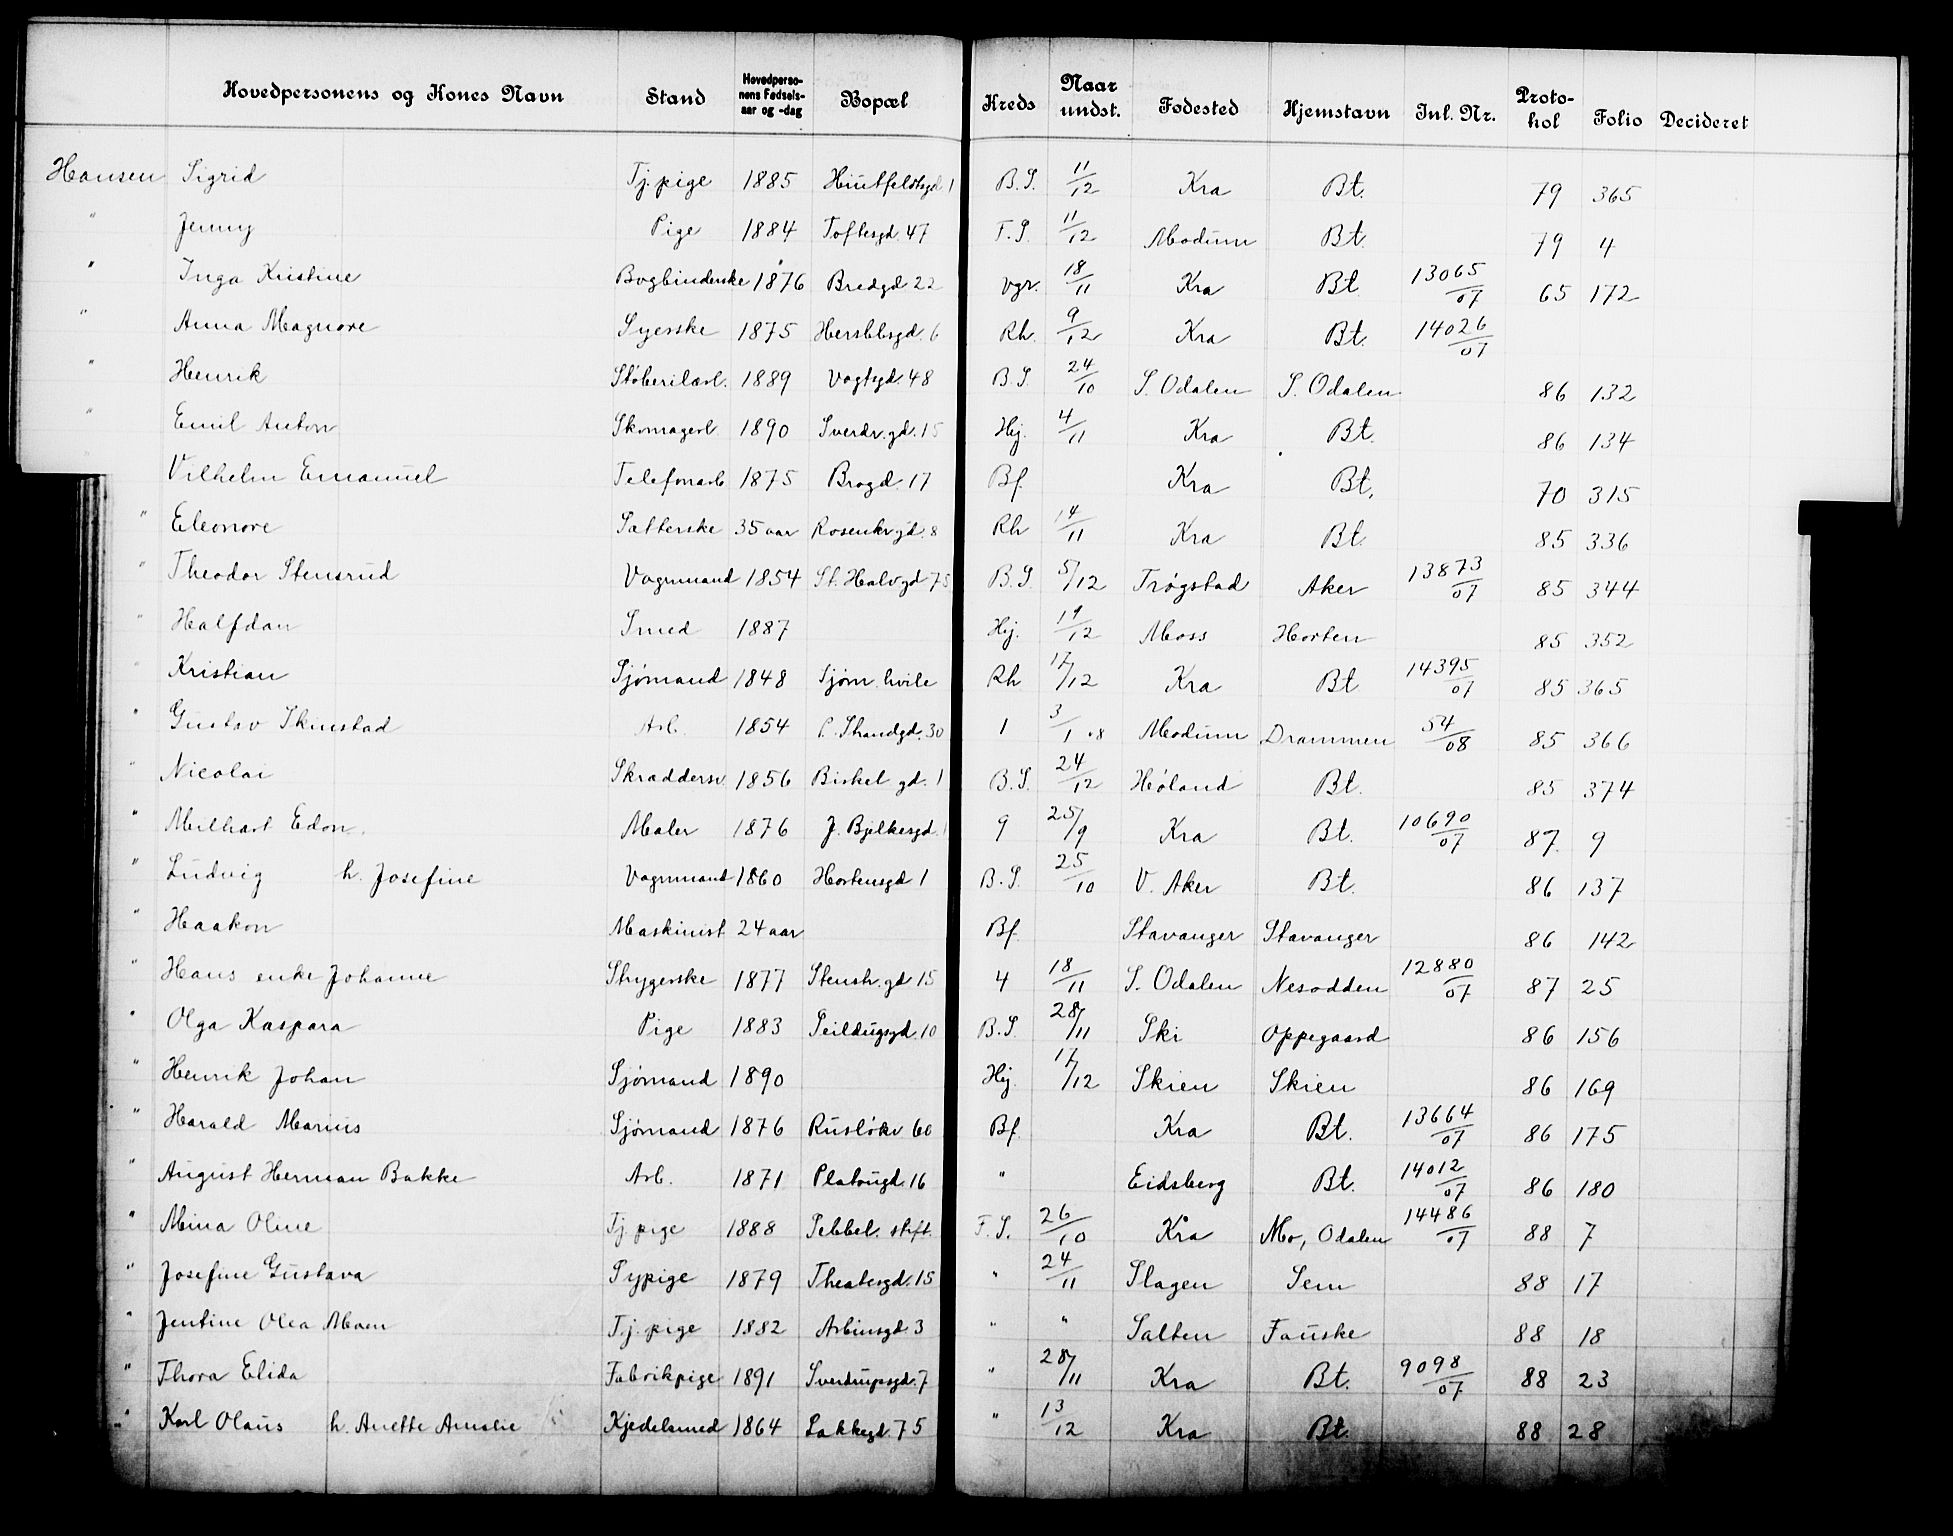 Hovedpersonens og Kones Navn Stand Hovedperso-nens Fødsels-aar og -dag Bopæl Kreds Naar undst. Fødested Hjemstavn Inl. Nr. Proto-kol Folio Decideret
Hansen Sigrid Tj. pige 1885 Huitfeldtsgd 1 B.S. 11/12 Kra Bt. 79 365
" Jenny Pige 1884 Toftesgd. 47 F.S. 11/12 Modum Bt. 79 4
" Inga Kristine Bogbinderske 1876 Bredgd 22 Vgr. 18/11 Kra Bt. 13065/07 65 172
" Anna Magnore Syerske 1875 Herslebsgd. 6 Rh. 9/12 Kra Bt. 14026/07
" Henrik Støberiarb. 1889 Vogtsgd. 48 B.S. 24/10 S. Odalen S. Odalen 86 132
" Emil Anton Skomagerl. 1890 Sverdr.gd. 15 Hj. 4/11 Kra Bt. 86 134
Vilhelm Emanuel Telefonarb 1875 Brogd. 17 Bf. Kra Bt. 70 315
" Eleonore Sætterske 35 aar Rosenkr.gd. 8 Rh 14/11 Kra Bt. 85 336
" Theodor Stensrud Vognmand 1854 St. Halvgd 75 B.S. 5/12 Trøgstad Aker 13873/07 85 344
" Halfdan Smed 1887 Hj. 19/12 Moss Horten 85 352
" Kristian Sjømand 1848 Sjøm. hvile Rh 17/12 Kra Bt 14395/07 85 365
" Gustav Skinstad Arb. 1854 P. Strandgd. 30 1 3/1 08 Modum Drammen 54/08 85 366
" Nicolai Skræddersv. 1856 Biskel gd. 1 B.S. 24/12 Høland Bt. 85 374
" Milhart Edon. Maler 1876 J. Bjelkesgd. 9 25/9 Kra Bt. 10690/07 87. 9
" Ludvig h. Josefine Vognmand 1860 Hortensgd 1 B.S. 25/10 V. Aker Bt. 86 137
" Haakon Maskinist 24 aar Bf. Stavanger Stavanger 86 142
" Hans enke Johanne Strygerske 1877 Stenstr.gd 15 4 18/11 S. Odalen Nesodden 12880/07 87 25
" Olga Kaspara Pige 1883 Seildugsgd. 10 B.S. 28/11 Ski Oppegaard 86 156
" Henrik Johan Sjømand 1890 Hj. 17/12 Skien Skien 86 169
" Harald Marius Sjømand 1876 Rusløkv 60 Bf. Kra Bt. 13664/07 86 175
" August Herman Bakke Arb. 1871 Platougd. 16 " Eidsberg Bt. 14012/07 86 180
" Mina Oline Tj. pige 1888 Sebbel. stift. F.S. 26/10 Kra Mo, Odalen 14486/07 88 7
" Josefine Gustava Sypige 1879 Theatersgd. 15 " 24/11 Slagen Sem 88 17
" Jentine Olea Moen Tj. pige 1882 Arbinsgd 3 " " Salten Fauske 88 18
" Thora Elida Fabrikpige 1891 Sverdrupsgd. 7 " 28/11 Kra Bt. 9098/07 88 23
" Karl Olaus h. Anette Amalie Kjedelsmed 1864 Lakkegd. 75 " 13/12 Kra Bt. 88 28